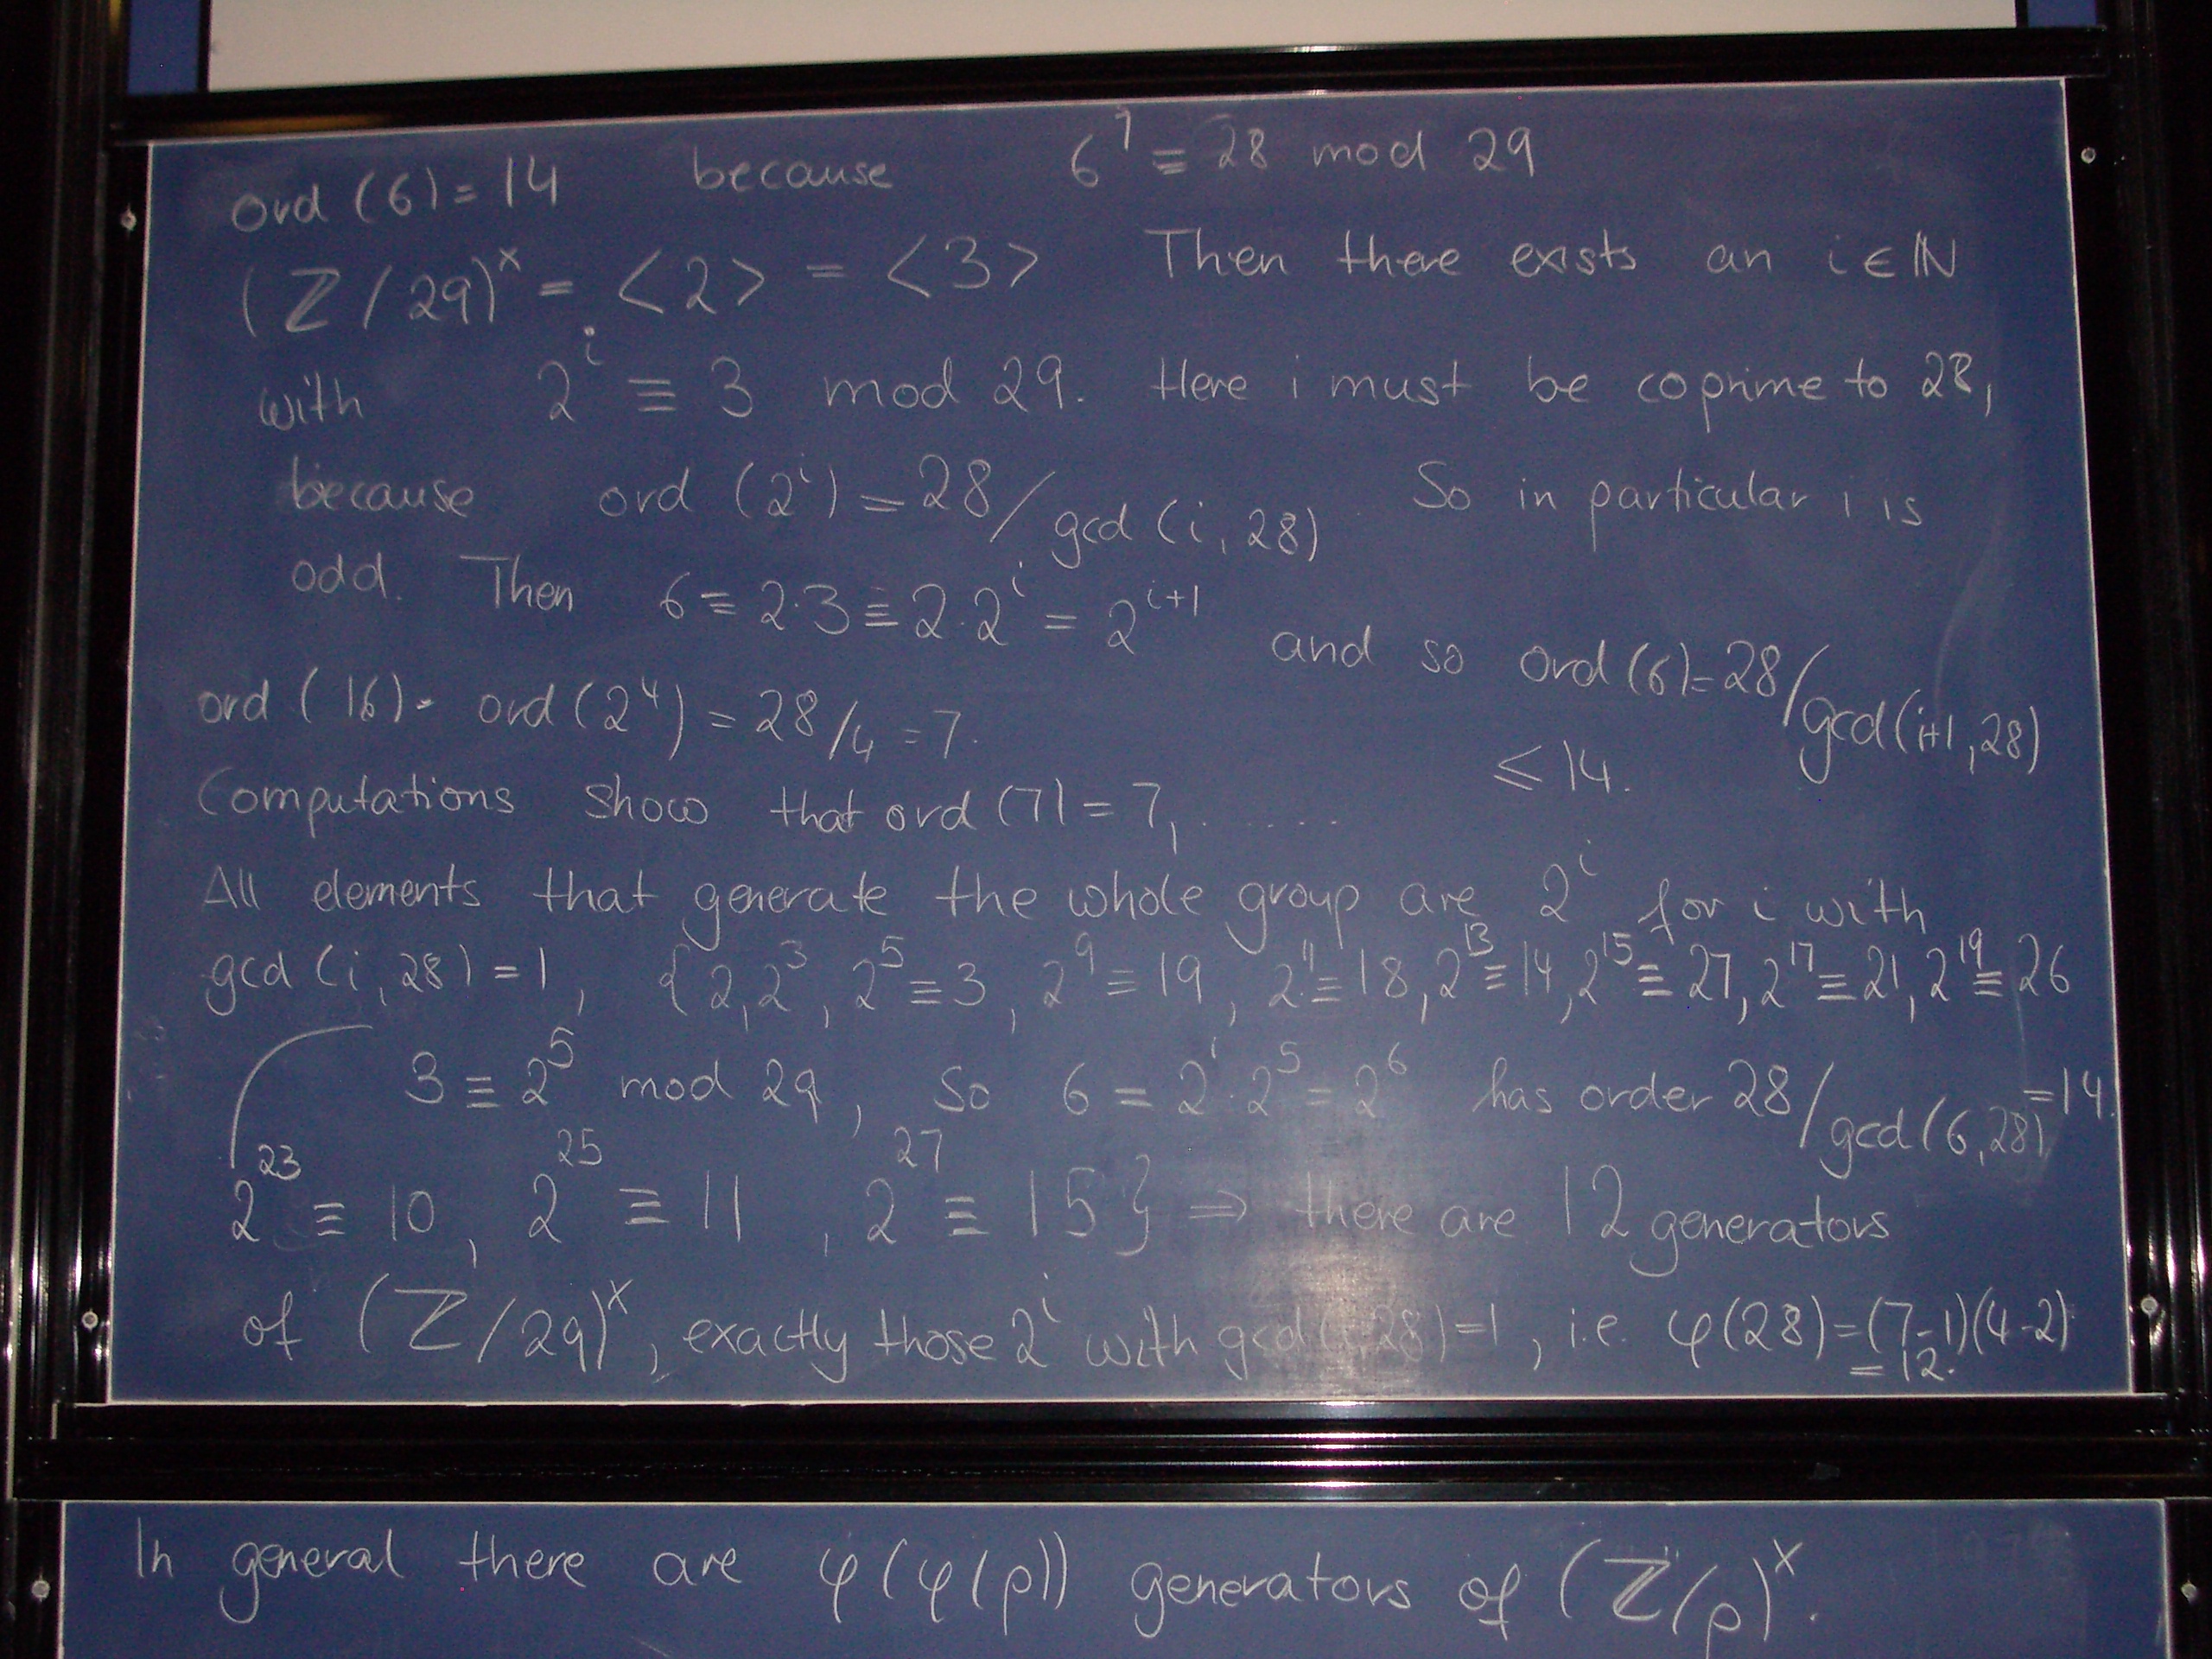 ord (6) = 14 because 6^7 ≡ 28 mod 29
(Z/29)^x = <2> = <3> Then there exists an i ∈ ℕ
with 2^i ≡ 3 mod 29. Here i must be coprime to 28,
because ord (2^i) = 28/gcd (i, 28) So in particular i is
odd. Then 6 ≡ 2·3 ≡ 2·2^i = 2^(i+1) and so ord (6) = 28/gcd (i+1, 28)
≤ 14.
ord (16) = ord (2^4) = 28/4 = 7.
Computations show that ord (7) = 7, ......
All elements that generate the whole group are 2^i for i with
gcd (i, 28) = 1, {2, 2^3, 2^5 ≡ 3, 2^9 ≡ 19, 2^11 ≡ 18, 2^13 ≡ 14, 2^15 ≡ 27, 2^17 ≡ 21, 2^19 ≡ 26
3 ≡ 2^5 mod 29, So 6 = 2^1·2^5 = 2^6 has order 28/gcd (6, 28) = 14.
2^23 ≡ 10, 2^25 ≡ 11, 2^27 ≡ 15} ⇒ there are 12 generators
of (Z/29)^x, exactly those 2^i with gcd (i, 28) = 1, i.e. φ(28) = (7-1)(4-2)
= 12.
In general there are φ(φ(p)) generators of (Z/p)^x.